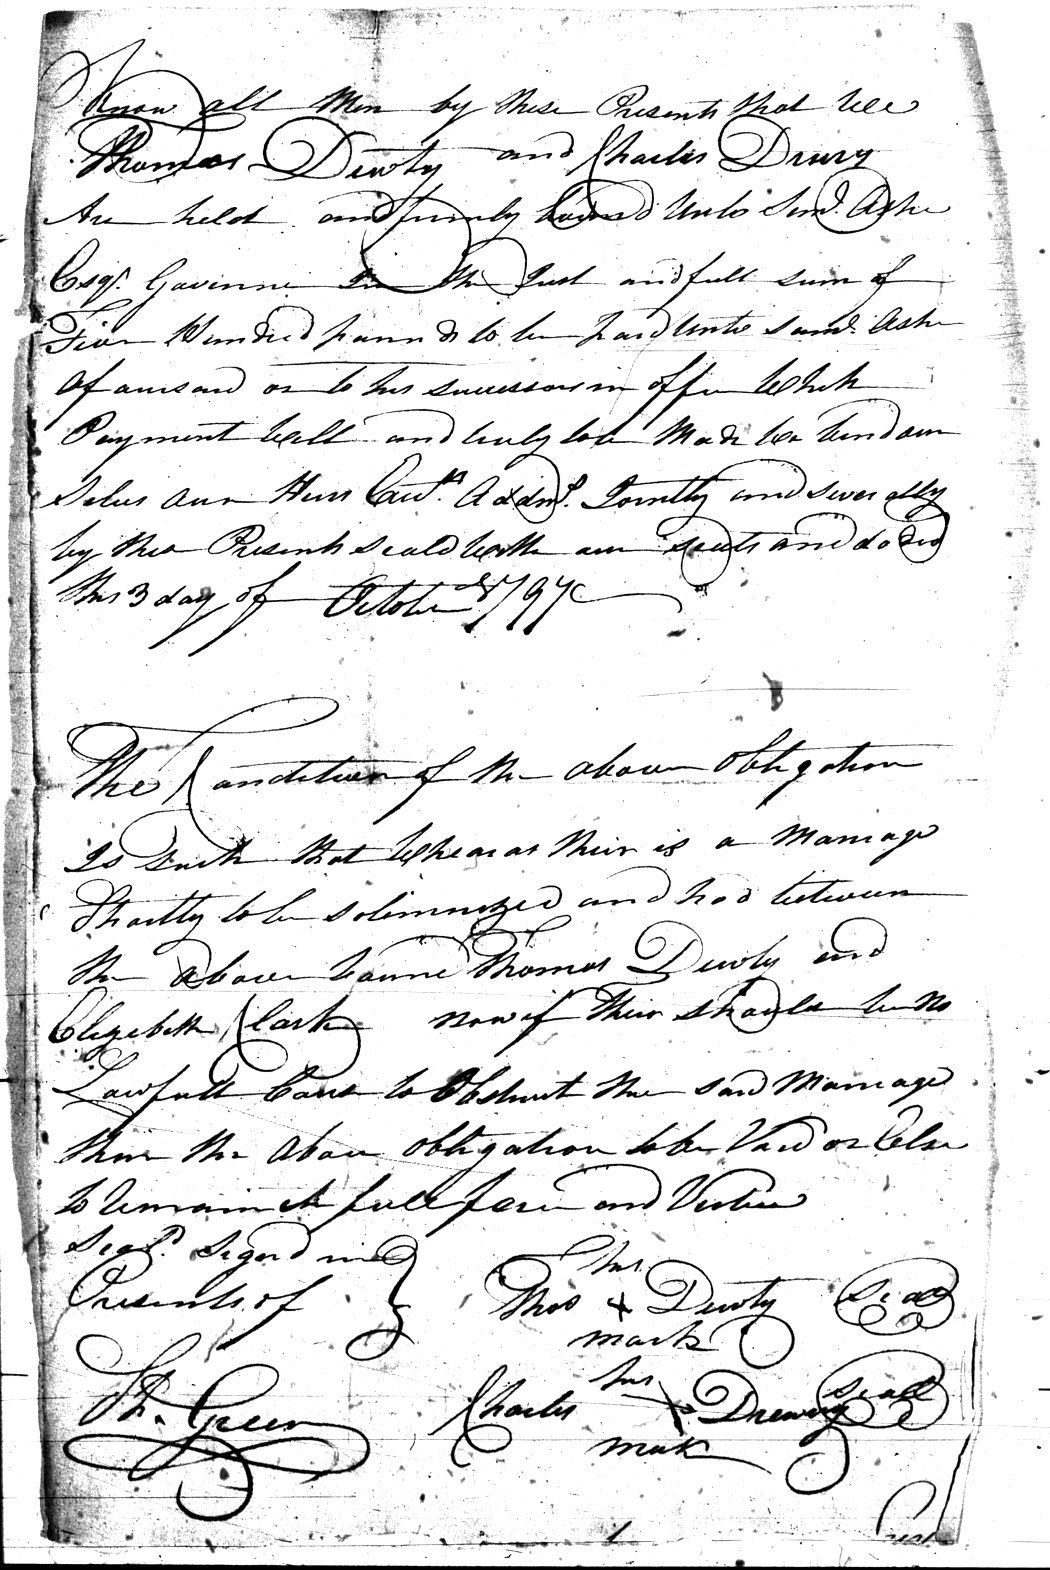 Know all Men by these Presents that wee
Thomas Dewty and Charles Drury
Are held and firmly bound Unto Sam.l Ashe
Esqr. Govinner In the Just and full sum of
Five Hundred pounds to be paid Unto Sam.l Ashe
Afousaid or to his successors in offis Which
Payment well and truly to be Made We bind our
Selves our Heirs Adm.s Jointly and severally
by thes Presents Seald with our seals and dated
this 3 day of October 1797
The Condition of the above Obligation
Is Such that Whearas their is a Marriage
Shortly to be solemnized and had between
the above boune Thomas Dewty and
Elizebeth Clark now if their should be no
Lawfull Caus to Obstruct the said Marriage
then the Above Obligation to be Void or Else
to Remain in full force and Virtue
Seal.d Signd in
Presents of
his
Thos x Dewty Seal
mark
his
Th. Green Charles x Drewry Seal
mark